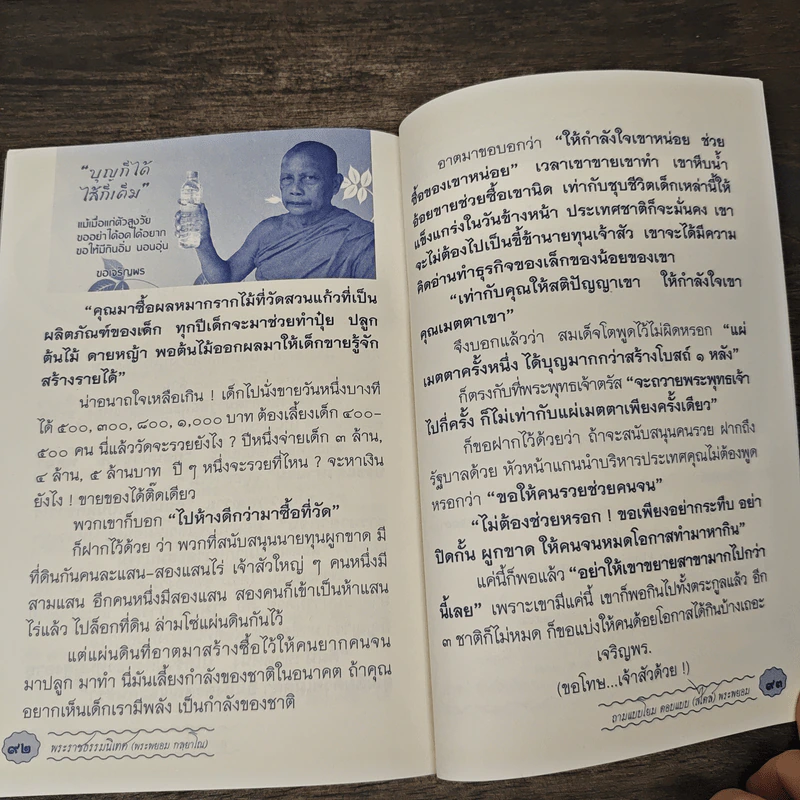 “บุญก็ได้
ไส้ก็เต็ม”
แม้เมื่อแก่ตัวสูงวัย
ขออย่าได้อดได้อยาก
ขอให้มีกินอิ่ม นอนอุ่น
ขอเจริญพร
“คุณมาซื้อผลหมากรากไม้ที่วัดสวนแก้วที่เป็น
ผลิตภัณฑ์ของเด็ก ทุกปีเด็กจะมาช่วยทำปุ๋ย ปลูก
ต้นไม้ ดายหญ้า พอต้นไม้ออกผลมาให้เด็กขายรู้จัก
สร้างรายได้”
น่าอนาถใจเหลือเกิน ! เด็กไปนั่งขายวันหนึ่งบางที
ได้ ๕๐๐, ๓๐๐, ๘๐๐, ๑,๐๐๐ บาท ต้องเลี้ยงเด็ก ๔๐๐-
๕๐๐ คน นี่แล้ววัดจะรวยยังไง ? ปีหนึ่งจ่ายเด็ก ๓ ล้าน,
๔ ล้าน, ๕ ล้านบาท ปี ๆ หนึ่งจะรวยที่ไหน ? จะหาเงิน
ยังไง ! ขายของได้ติ๊ดเดียว
พวกเขาก็บอก “ไปห้างดีกว่ามาซื้อที่วัด”
ก็ฝากไว้ด้วย ว่า พวกที่สนับสนุนนายทุนผูกขาด มี
ที่ดินกันคนละแสน-สองแสนไร่ เจ้าสัวใหญ่ ๆ คนหนึ่งมี
สามแสน อีกคนหนึ่งมีสองแสน สองคนก็เข้าเป็นห้าแสน
ไร่แล้ว ไปล็อกที่ดิน ล่ามโซ่แผ่นดินกันไว้
แต่แผ่นดินที่อาตมาสร้างซื้อไว้ให้คนยากคนจน
มาปลูก มาทำ นี่มันเลี้ยงกำลังของชาติในอนาคต ถ้าคุณ
อยากเห็นเด็กเรามีพลัง เป็นกำลังของชาติ
๙๒ พระราชธรรมนิเทศ (พระพยอม กลฺยาโณ)
อาตมาขอบอกว่า “ให้กำลังใจเขาหน่อย ช่วย
ซื้อของเขาหน่อย” เวลาเขาขายเขาทำ เขาหีบน้ำ
อ้อยขายช่วยซื้อเขานิด เท่ากับชุบชีวิตเด็กเหล่านี้ให้
แข็งแกร่งในวันข้างหน้า ประเทศชาติก็จะมั่นคง เขา
จะไม่ต้องไปเป็นขี้ข้านายทุนเจ้าสัว เขาจะได้มีความ
คิดอ่านทำธุรกิจของเล็กของน้อยของเขา
“เท่ากับคุณให้สติปัญญาเขา ให้กำลังใจเขา
คุณเมตตาเขา”
จึงบอกแล้วว่า สมเด็จโตพูดไว้ไม่ผิดหรอก “แผ่
เมตตาครั้งหนึ่ง ได้บุญมากกว่าสร้างโบสถ์ ๑ หลัง”
ก็ตรงกับที่พระพุทธเจ้าตรัส “จะถวายพระพุทธเจ้า
ไปกี่ครั้ง ก็ไม่เท่ากับแผ่เมตตาเพียงครั้งเดียว”
ก็ขอฝากไว้ด้วยว่า ถ้าจะสนับสนุนคนรวย ฝากถึง
รัฐบาลด้วย หัวหน้าแกนนำบริหารประเทศคุณไม่ต้องพูด
หรอกว่า “ขอให้คนรวยช่วยคนจน”
“ไม่ต้องช่วยหรอก ! ขอเพียงอย่ากระทืบ อย่า
ปิดกั้น ผูกขาด ให้คนจนหมดโอกาสทำมาหากิน”
แค่นี้ก็พอแล้ว “อย่าให้เขาขยายสาขามากไปกว่า
นี้เลย” เพราะเขามีแค่นี้ เขาก็พอกินไปทั้งตระกูลแล้ว อีก
๓ ชาติก็ไม่หมด ก็ขอแบ่งให้คนด้อยโอกาสได้กินบ้างเถอะ
เจริญพร.
(ขอโทษ...เจ้าสัวด้วย !)
ถามแบบโยม ตอบแบบ (สไตล์) พระพยอม ๙๓